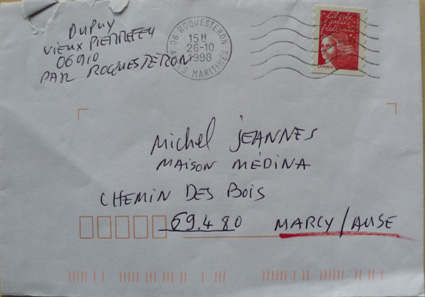 DUPUY
VIEUX PIERREFEU
06910
PAR ROQUESTERON
06 ROQUESTERON
15H
26-10
1998
ALPES MARITIMES
Michel JEANNES
MAISON MÉDINA
CHEMIN DES BOIS
69.480 MARCY/ANSE